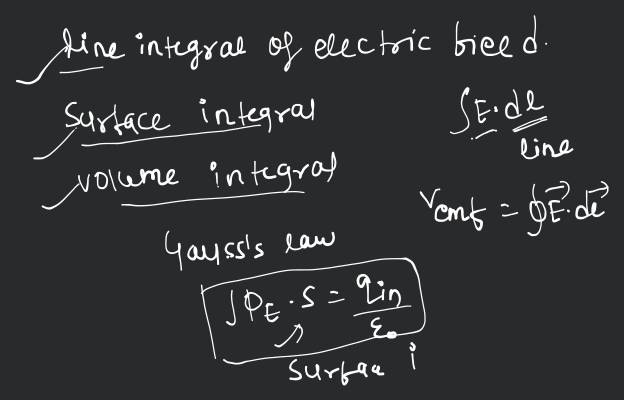 Line integral of electric field.
Surface integral
∫E.dl
line
volume integral
Vemf = ∮E⃗.dl⃗
Gauss's law
∫φE.S = qin/ε₀
surface i